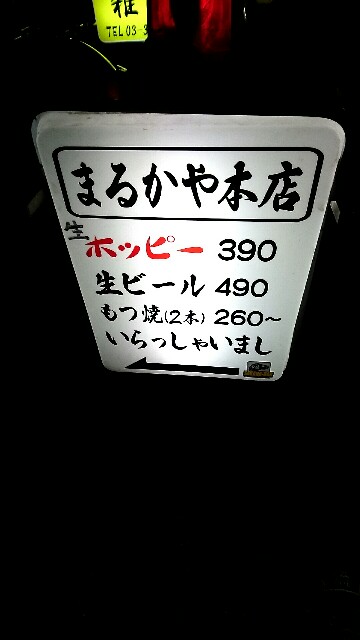 雅
TEL 03-3
まるかや本店
生ホッピー 390
生ビール 490
もつ焼(2本) 260〜
いらっしゃいまし